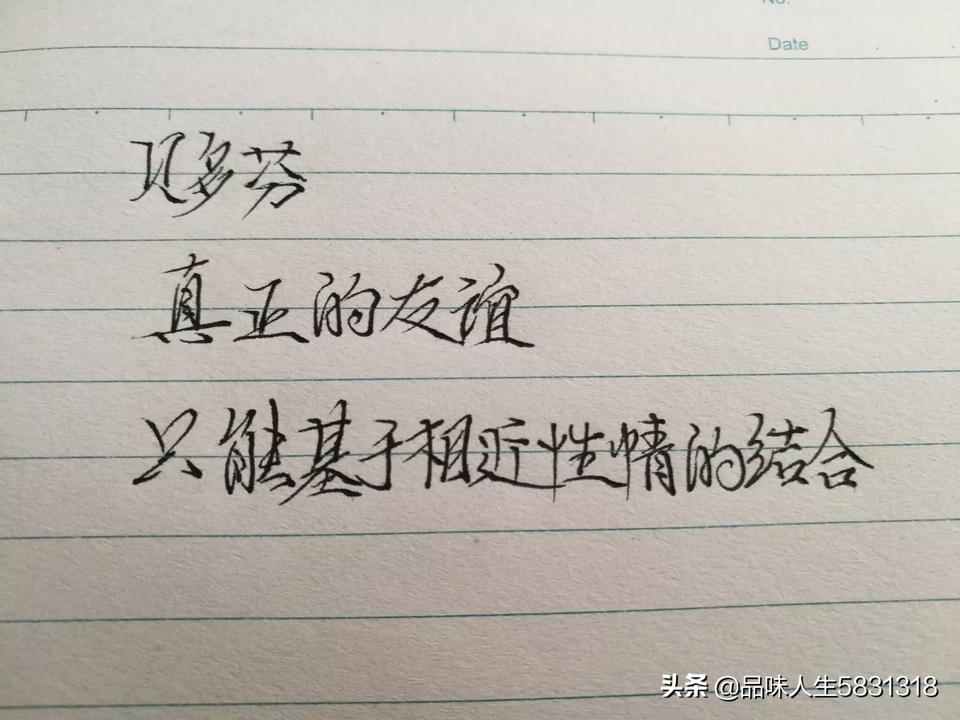 No.
Date
贝多芬
真正的友谊
只能基于相近性情的结合
头条 @品味人生5831318